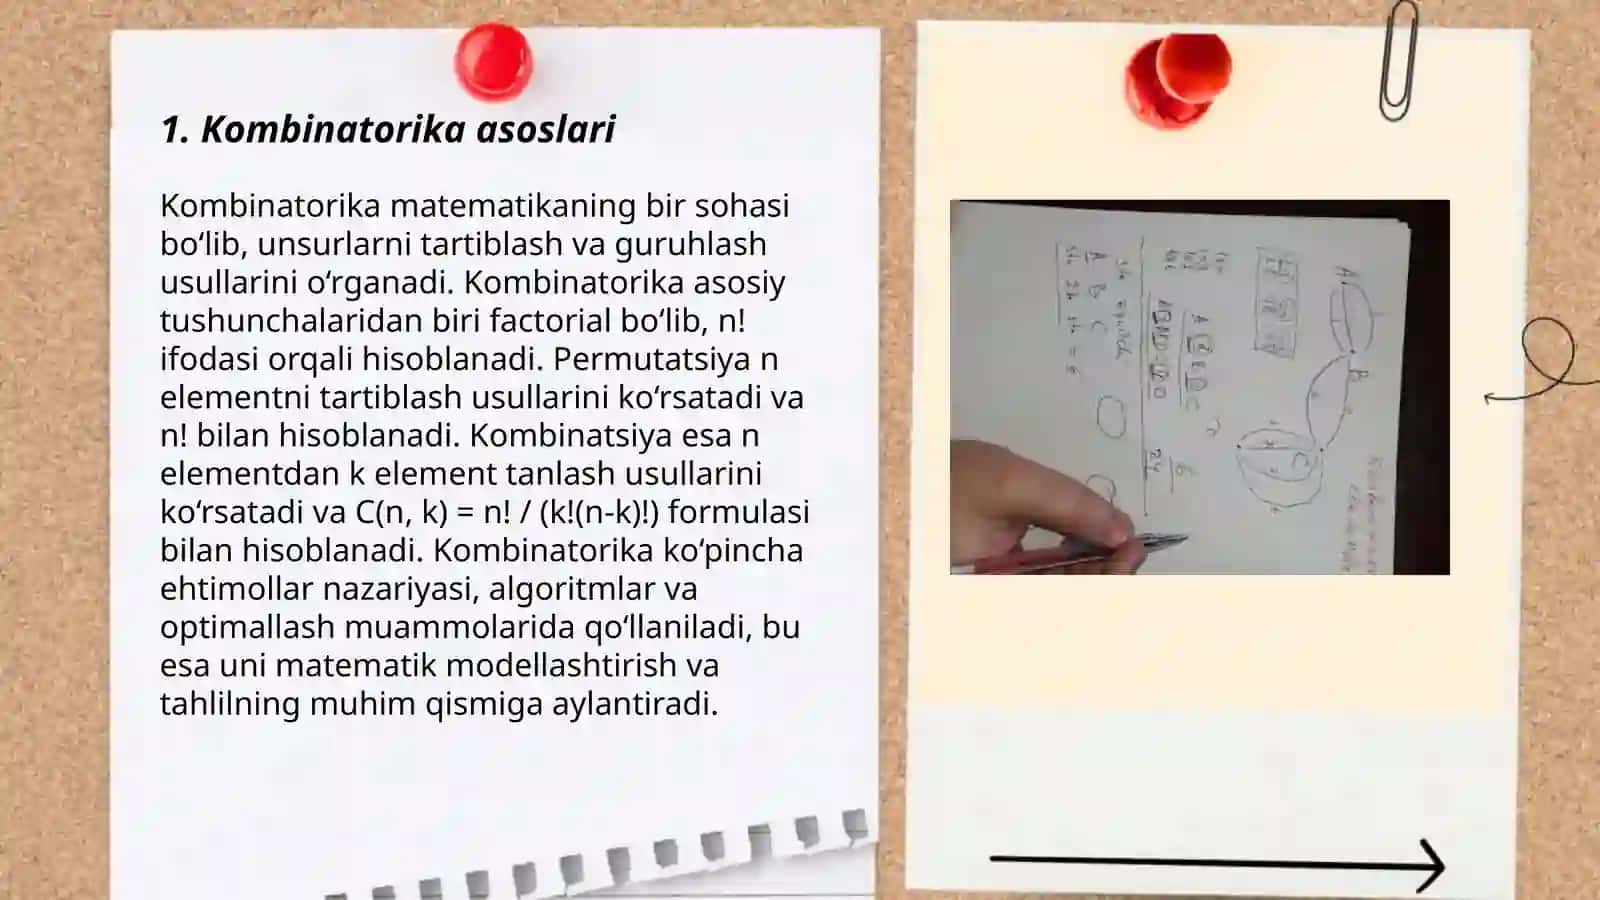 1. Kombinatorika asoslari
Kombinatorika matematikaning bir sohasi
bo‘lib, unsurlarni tartiblash va guruhlash
usullarini o‘rganadi. Kombinatorika asosiy
tushunchalaridan biri factorial bo‘lib, n!
ifodasi orqali hisoblanadi. Permutatsiya n
elementni tartiblash usullarini ko‘rsatadi va
n! bilan hisoblanadi. Kombinatsiya esa n
elementdan k element tanlash usullarini
ko‘rsatadi va C(n, k) = n! / (k!(n-k)!) formulasi
bilan hisoblanadi. Kombinatorika ko‘pincha
ehtimollar nazariyasi, algoritmlar va
optimallash muammolarida qo‘llaniladi, bu
esa uni matematik modellashtirish va
tahlilning muhim qismiga aylantiradi.
A
B
C
A B C
6
24